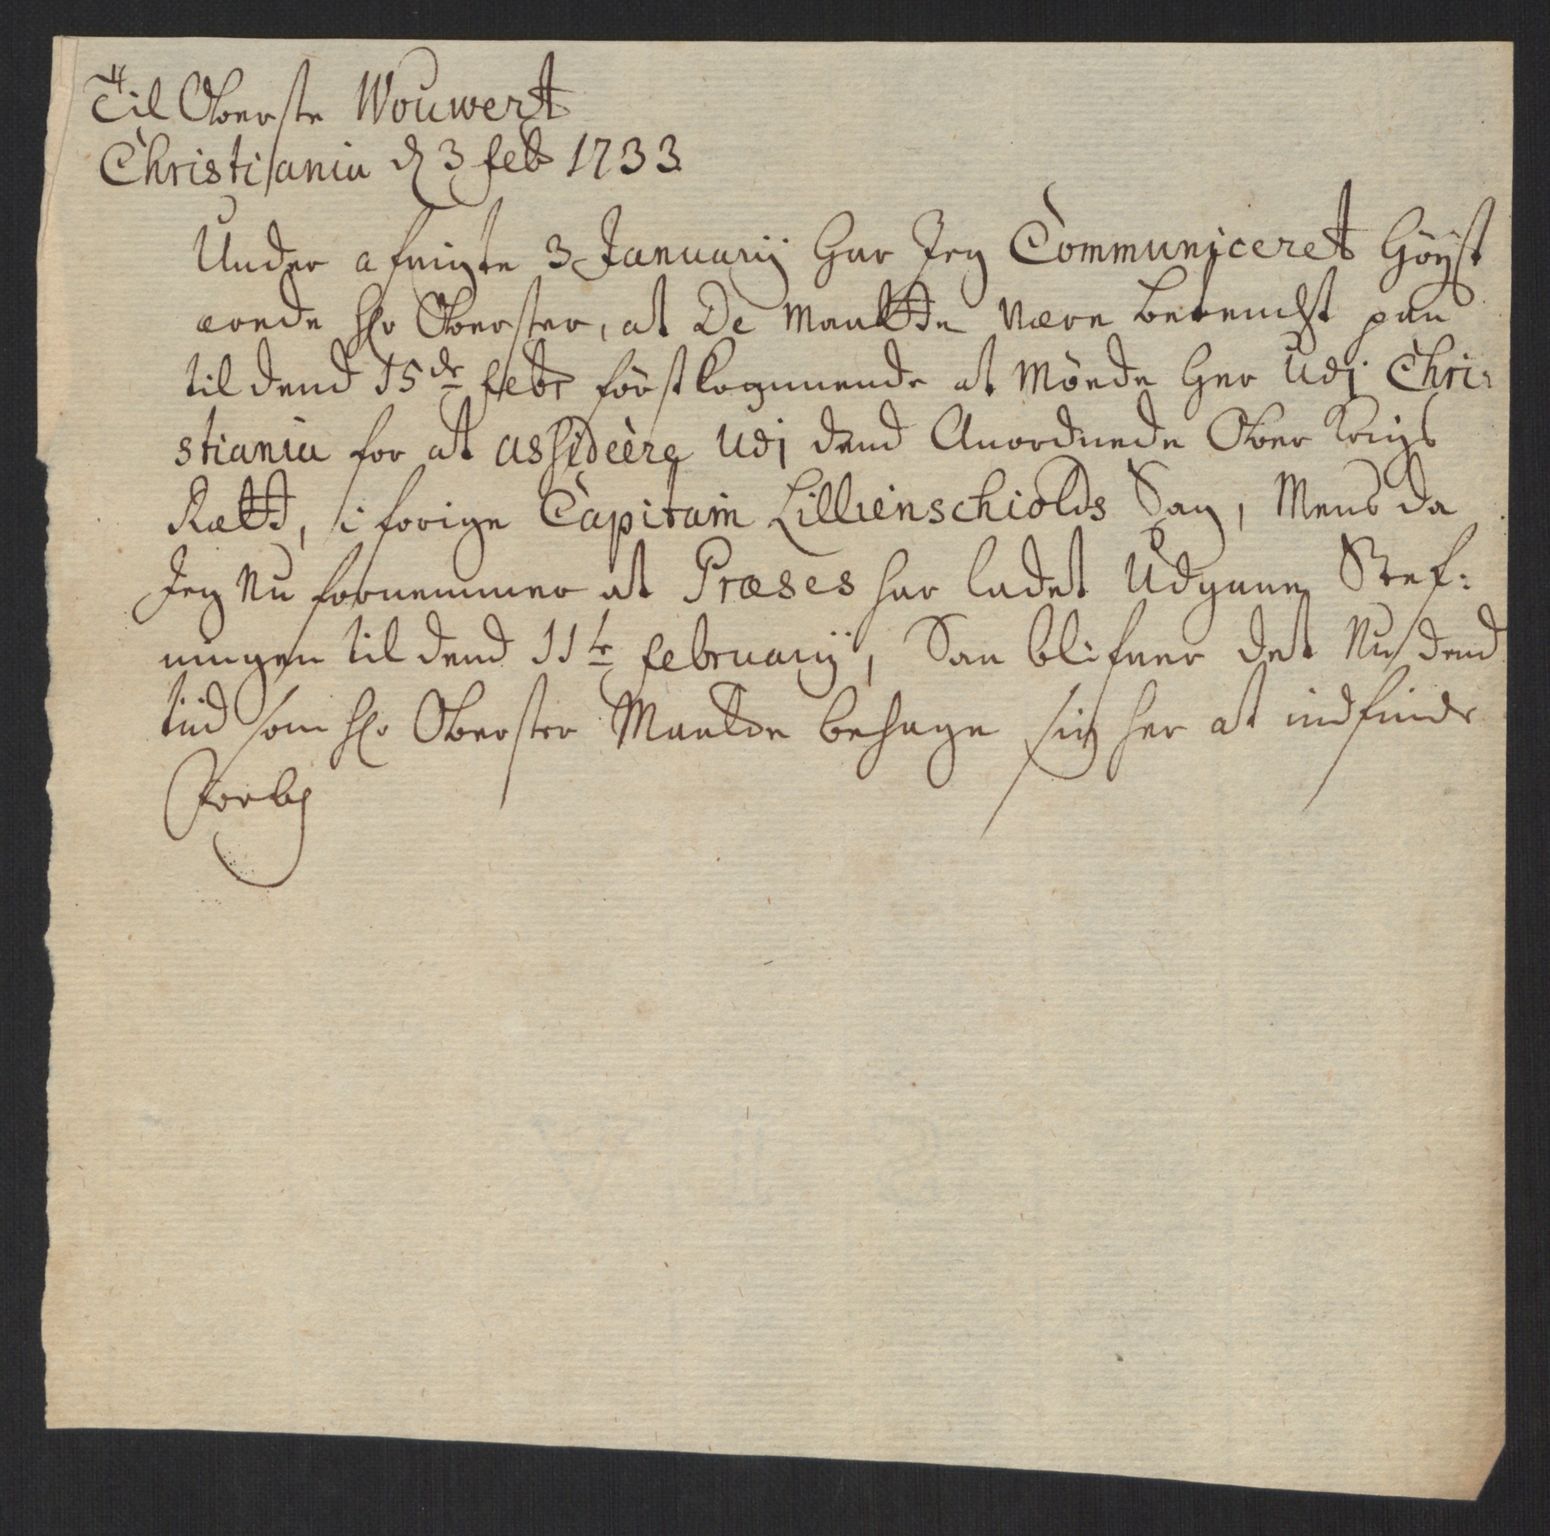 Til Oberste Wouwert
Christiania d 3 feb 1733
Under afvigte 3 Januarij har Jeg Communiceret Høÿst
ærede Hr Oberster, at De maatte være betencht paa
til dend 15de febr førstkommende at møede her udj Chri-
stiania for at assideère udj dend Anordnede Ober Krigs
Rætt, i forige Capitain Lillienschiolds Sag, Mens da
Jeg nu fornemmer at Præses har ladet udgaae Stef:
ningen til dend 11te februarij, Saa blifver det nu dend
tiid som Hr Oberster Maatte behage sig her at indfinde
Forbl